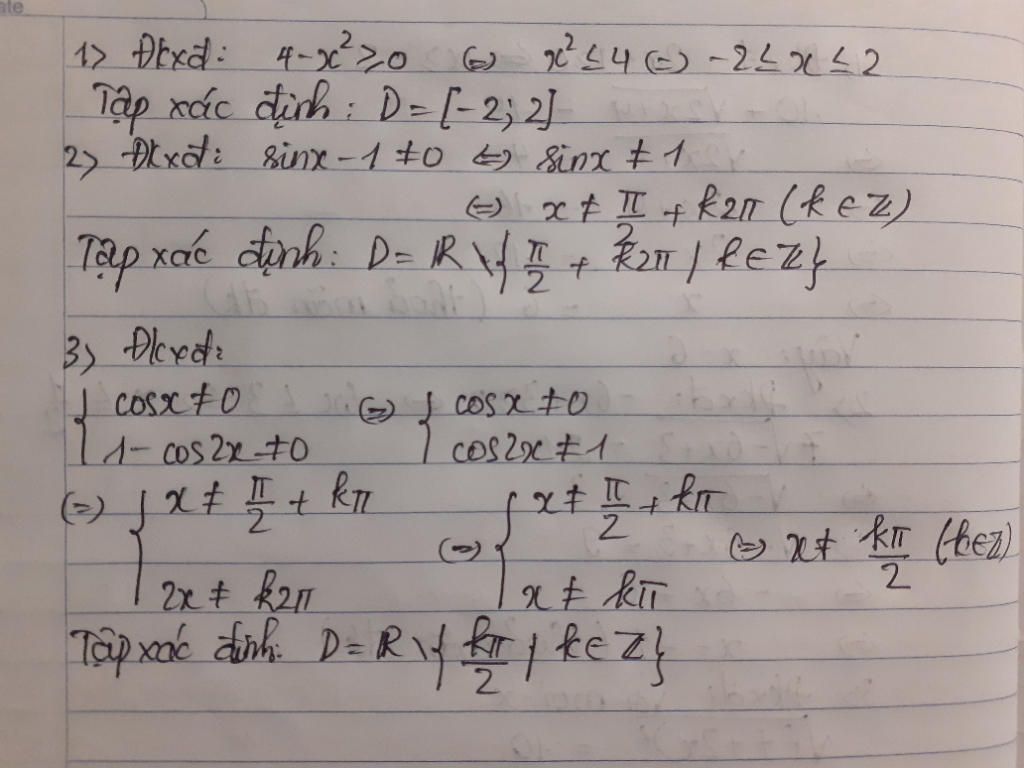 ate
1> Đkxđ: 4-x² ≥ 0 ⇔ x² ≤ 4 ⇔ -2 ≤ x ≤ 2
Tập xác định: D = [-2; 2]
2> Đkxđ: sinx - 1 ≠ 0 ⇔ sinx ≠ 1
⇔ x ≠ π/2 + k2π (k ∈ ℤ)
Tập xác định: D = ℝ \ { π/2 + k2π / k ∈ ℤ }
3> Đkxđ:
{ cosx ≠ 0 ⇔ { cosx ≠ 0
1 - cos2x ≠ 0 cos2x ≠ 1
⇔ { x ≠ π/2 + kπ ⇔ { x ≠ π/2 + kπ ⇔ x ≠ kπ/2 (k∈ℤ)
2x ≠ k2π x ≠ kπ
Tập xác định: D = ℝ \ { kπ/2 / k ∈ ℤ }